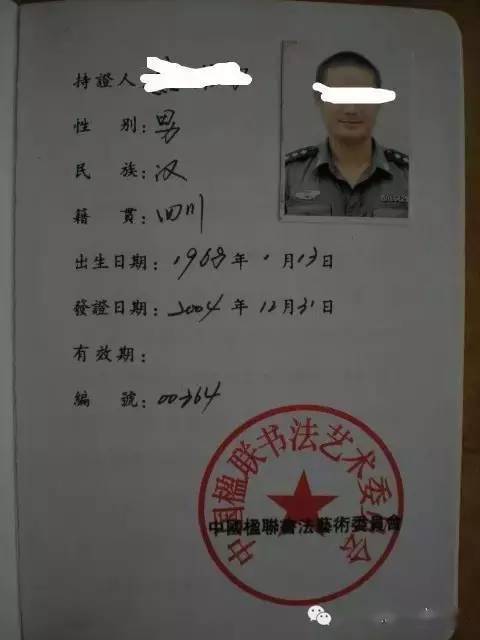 持證人
性 别：男
民 族：汉
籍 貫：四川
出生日期：1968年1月13日
發證日期：2004年12月31日
有效期：
編 號：00364
中国楹联书法艺术委员会
中國楹聯書法藝術委員會